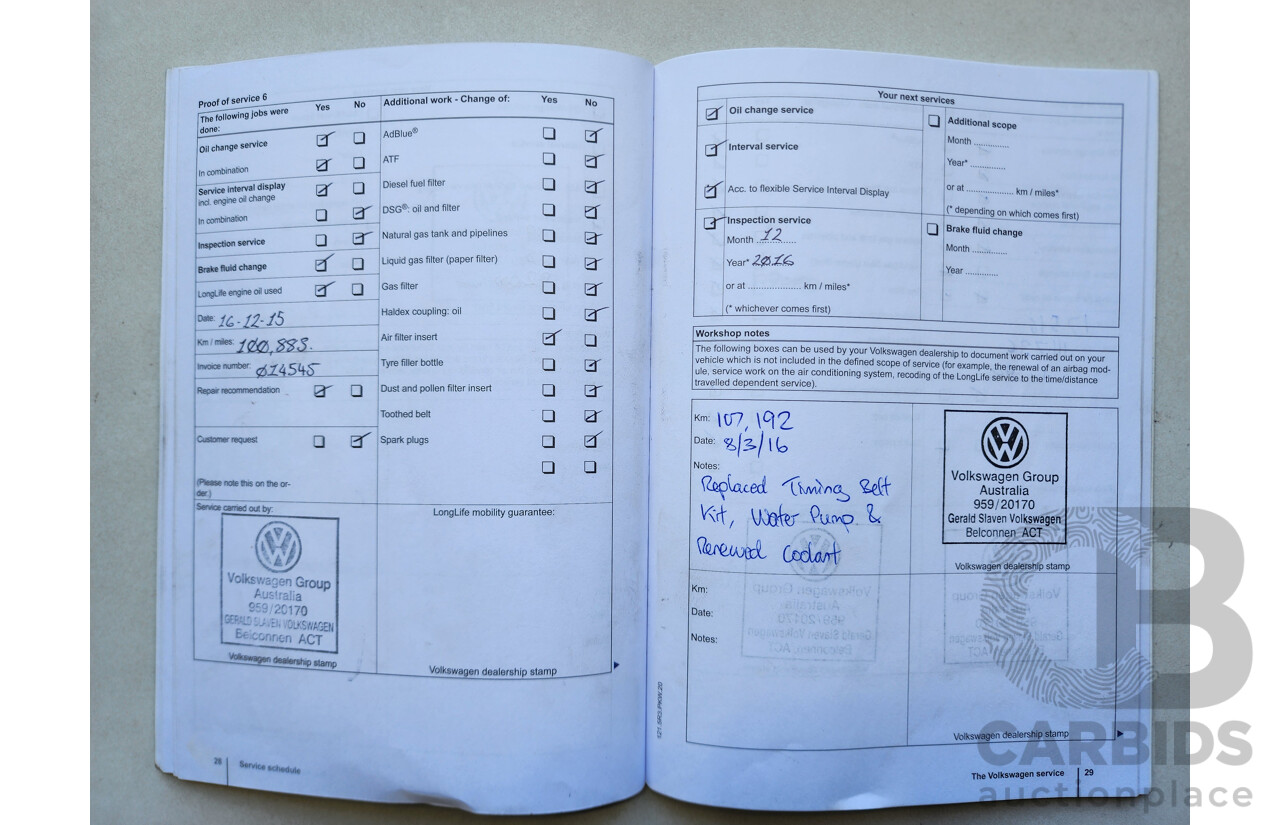 Proof of service 6
The following jobs were done: Yes No
Oil change service
In combination
Service interval display
incl. engine oil change
In combination
Inspection service
Brake fluid change
LongLife engine oil used
Date: 16-12-15
Km / miles: 100,883.
Invoice number: 014545
Repair recommendation
Customer request
(Please note this on the or-
der.)
Service carried out by:
Volkswagen Group
Australia
959/20170
GERALD SLAVEN VOLKSWAGEN
Belconnen ACT
Volkswagen dealership stamp
Additional work - Change of: Yes No
AdBlue®
ATF
Diesel fuel filter
DSG®: oil and filter
Natural gas tank and pipelines
Liquid gas filter (paper filter)
Gas filter
Haldex coupling: oil
Air filter insert
Tyre filler bottle
Dust and pollen filter insert
Toothed belt
Spark plugs
LongLife mobility guarantee:
Volkswagen dealership stamp
28 Service schedule
Your next services
Oil change service
Interval service
Acc. to flexible Service Interval Display
Inspection service
Month 12
Year* 2016
or at .................... km / miles*
(* whichever comes first)
Additional scope
Month .............
Year* .............
or at .................. km / miles*
(* depending on which comes first)
Brake fluid change
Month .............
Year .............
Workshop notes
The following boxes can be used by your Volkswagen dealership to document work carried out on your
vehicle which is not included in the defined scope of service (for example, the renewal of an airbag mod-
ule, service work on the air conditioning system, recoding of the LongLife service to the time/distance
travelled dependent service).
Km: 107,192
Date: 8/3/16
Notes:
Replaced Timing Belt
Kit, Water Pump &
Renewed Coolant
Volkswagen Group
Australia
959/20170
Gerald Slaven Volkswagen
Belconnen ACT
Volkswagen dealership stamp
Km:
Date:
Notes:
Volkswagen dealership stamp
The Volkswagen service 29
CARBIDS
auctionplace